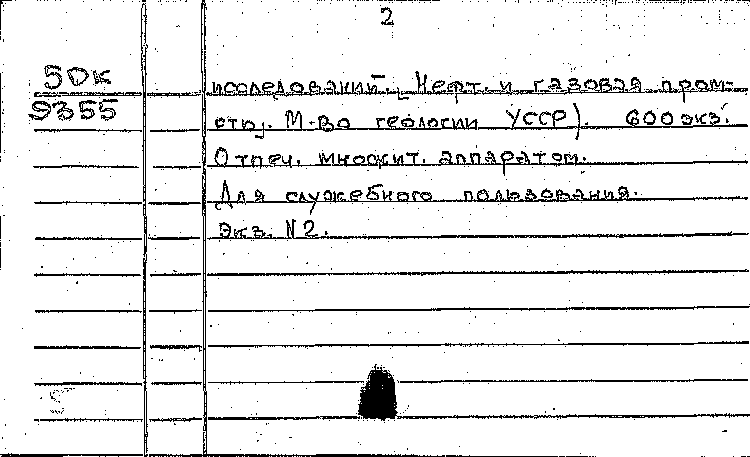 2
5DK
9355
исследований. Нефт. и газовая пром-
сть,. М-во геологии УССР). 600 экз.
Отпеч. множит. аппаратом.
Для служебного пользования.
Экз. N2.